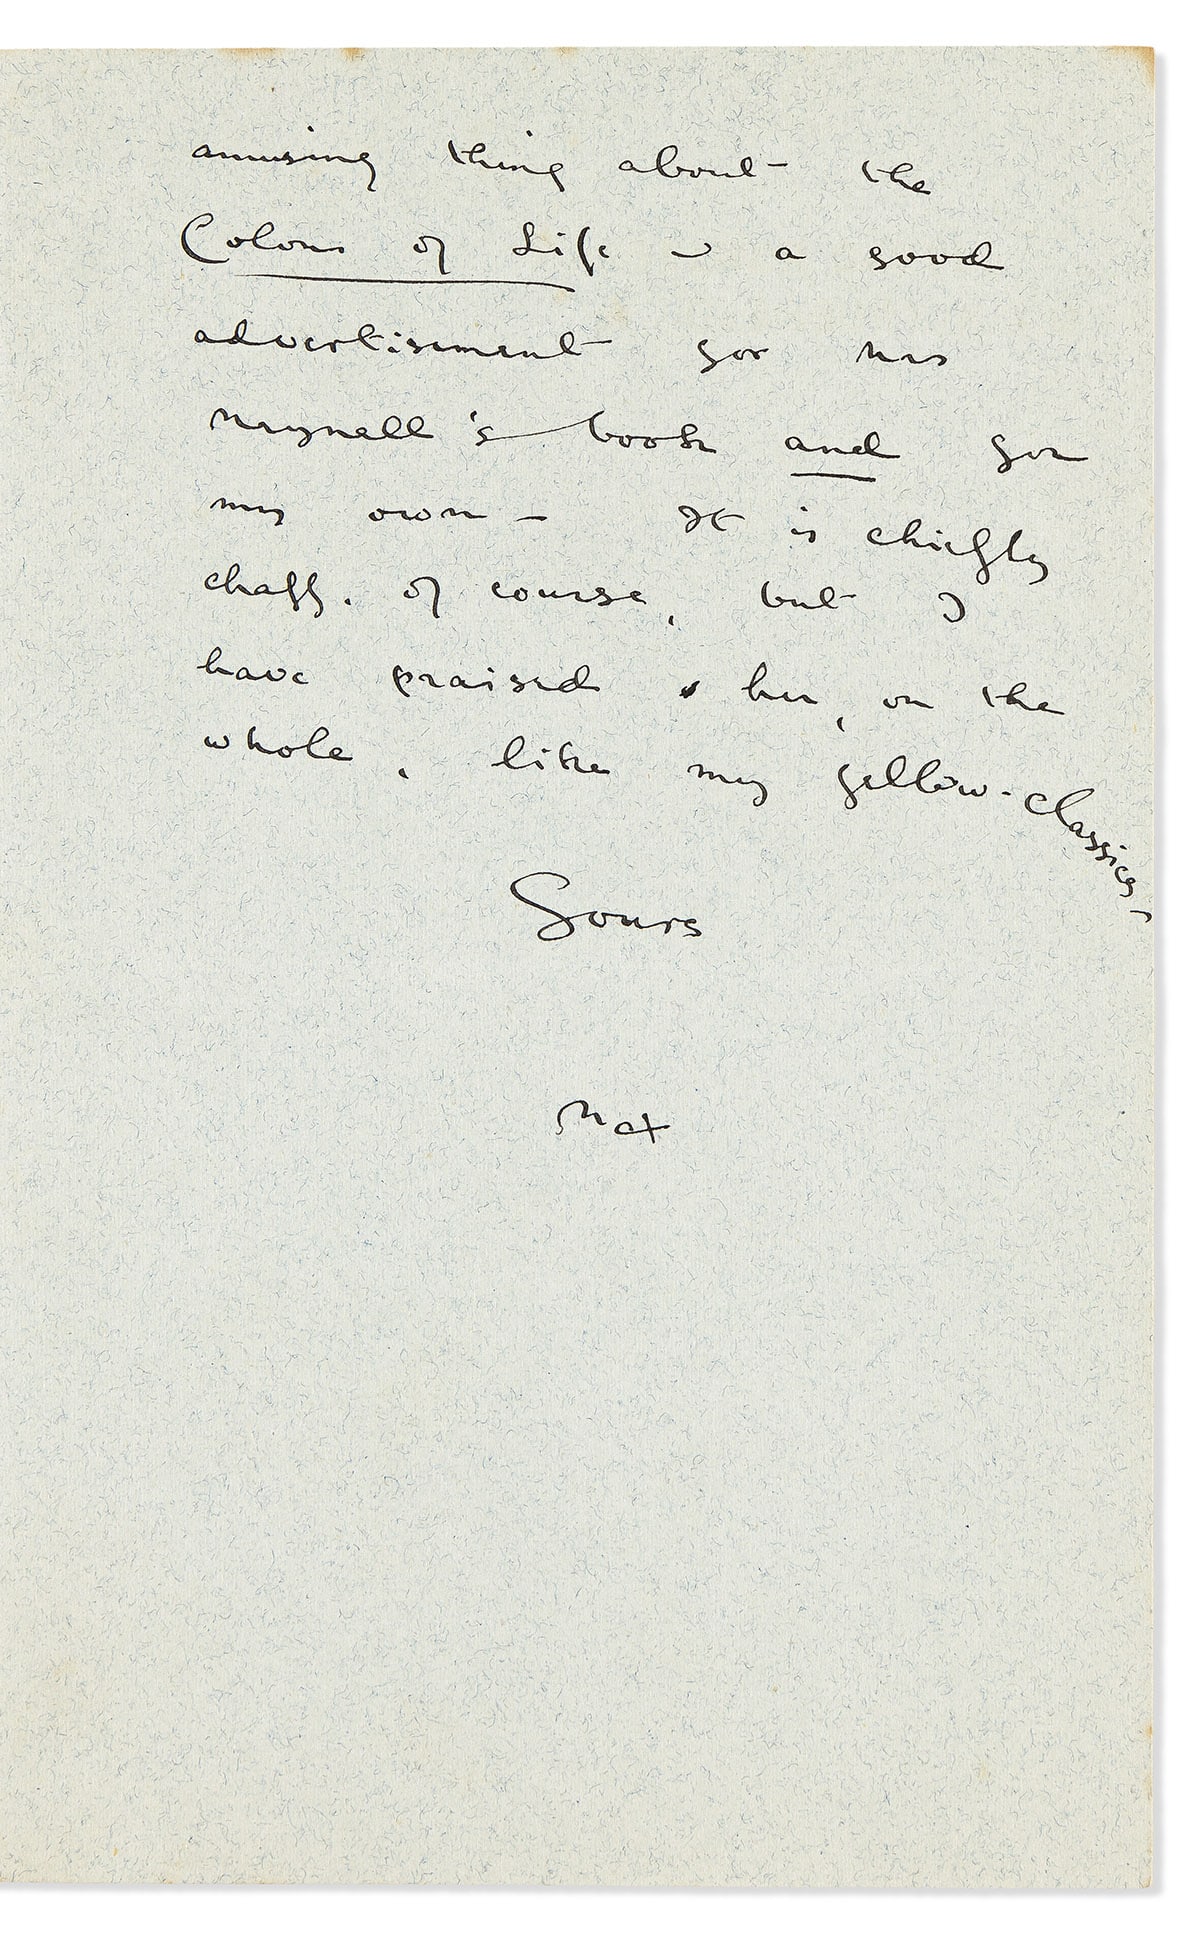 amusing thing about the
Colour of Life – a good
advertisement for Mrs
Meynell's book and for
my own – It is chiefly
chaff, of course, but I
have praised her, on the
whole, like my yellow-classics –
Yours
Max